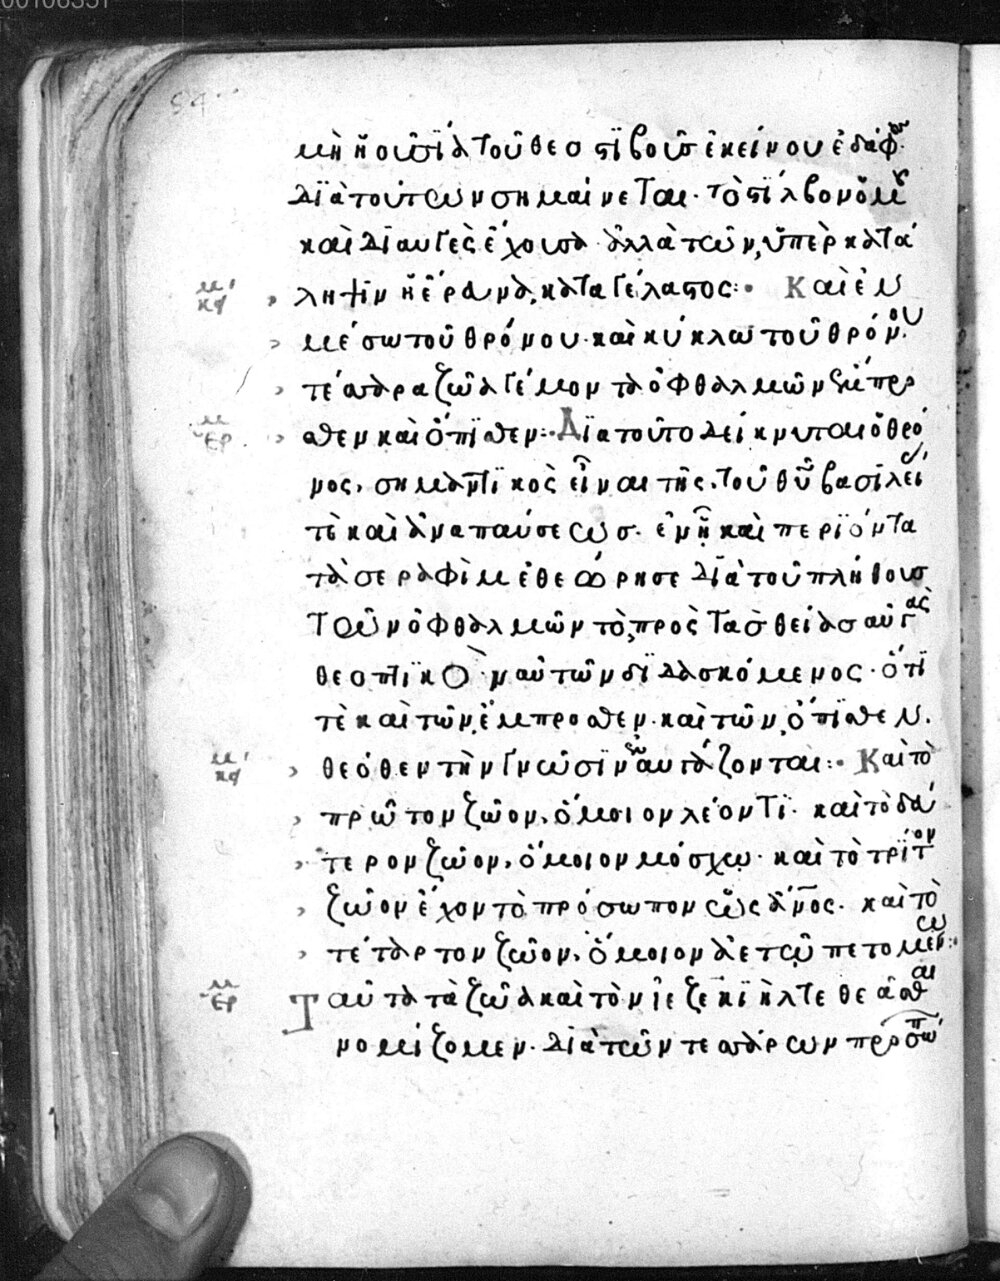 μὴ ἡ οὐσία τοῦ θεοστιβοῦς ἐκείνου ἐδάφους
διὰ τούτων σημαίνεται. τὸ στίλβον ὁμοῦ
καὶ διαυγὲς ἔχουσα ἀλλὰ τῶν ὑπὲρ κατά
ληψιν ἡ ἔρευνα, καταγέλαστος:· Καὶ ἐν
μέσω τοῦ θρόνου· καὶ κύκλω τοῦ θρόνου
τέσσαρα ζῶα γέμοντα ὀφθαλμῶν ἔμπρο
σθεν καὶ ὄπισθεν:· Διὰ τοῦτο δείκνυται ὁ θρό
νος, σημαντικὸς εἶναι τῆς τοῦ θῦ βασιλεί
ας καὶ ἀναπαύσεως. ἐν ᾗ καὶ περϊόντα
τὰ σεραφὶμ ἐθεώρησε διὰ τοῦ πλήθους
τῶν ὀφθαλμῶν τὸ, πρὸς τὰς θείας αὐγὰς
θεοπτικὸν αὐτῶν διδασκόμενος. ὅτι
τὲ καὶ τῶν ἔμπροσθεν. καὶ τῶν ὄπισθεν.
θεόθεν τὴν γνῶσιν αὐγάζονται:· Καὶ τὸ
πρῶτον ζῶον, ὅμοιον λέοντι. καὶ τὸ δεύ
τερον ζῶον, ὅμοιον μόσχω. καὶ τὸ τρίτον
ζῶον ἔχον τὸ πρόσωπον ὡς ἀνος. καὶ τὸ
τέταρτον ζῶον, ὅμοιον ἀετῷ πετομένω:·
Ταῦτα τὰ ζῶα καὶ τὸν ἰεζεκιὴλ τεθεᾶσθαι
νομίζομεν. διὰ τῶν τεσσάρων προσώπ